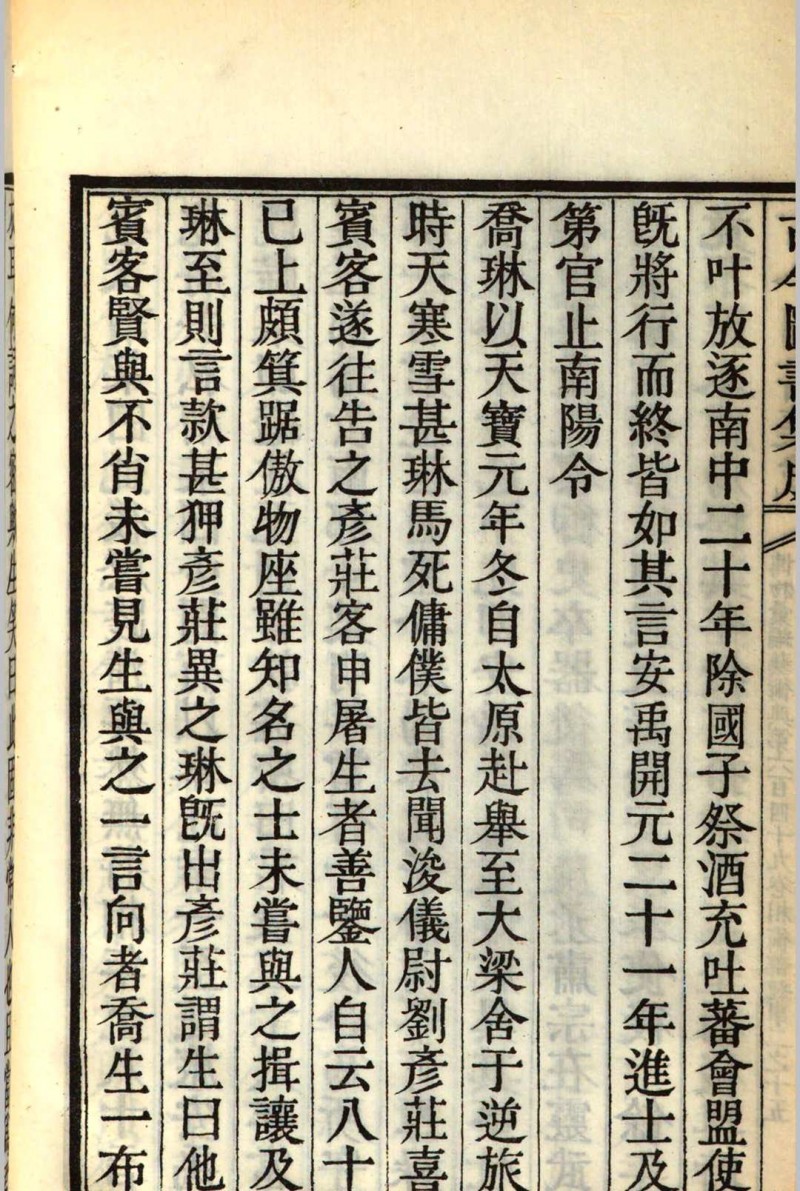 不叶放逐南中二十年除國子祭酒充吐蕃會盟使
旣將行而終皆如其言安禹開元二十一年進士及
第官止南陽令
喬琳以天寶元年冬自太原赴舉至大梁舍于逆旅
時天寒雪甚琳馬死傭僕皆去聞浚儀尉劉彥莊喜
賓客遂往告之彥莊客申屠生者善鑒人自云八十
已上頗箕踞傲物座雖知名之士未嘗與之揖讓及
琳至則言款甚狎彥莊異之琳旣出彥莊謂生曰他
賓客賢與不肖未嘗見生與之一言向者喬生一布